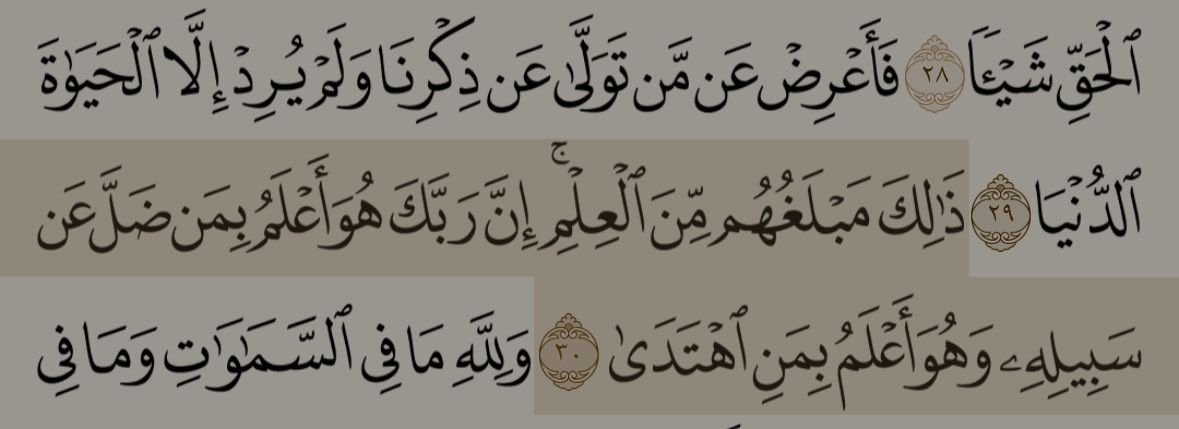 ٱلْحَقِّ شَيْـًٔا ٢٨ فَأَعْرِضْ عَن مَّن تَوَلَّىٰ عَن ذِكْرِنَا وَلَمْ يُرِدْ إِلَّا ٱلْحَيَوٰةَ
ٱلدُّنْيَا ٢٩ ذَٰلِكَ مَبْلَغُهُم مِّنَ ٱلْعِلْمِ ۚ إِنَّ رَبَّكَ هُوَ أَعْلَمُ بِمَن ضَلَّ عَن
سَبِيلِهِۦ وَهُوَ أَعْلَمُ بِمَنِ ٱهْتَدَىٰ ٣٠ وَلِلَّهِ مَا فِى ٱلسَّمَـٰوَٰتِ وَمَا فِى